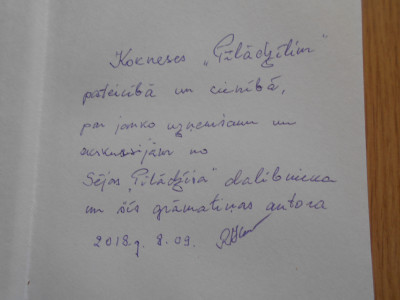 Kokneses "Pīlādzītim"
pateicībā un cieņībā,
par jauko uzņemšanu un
ekskursijām no
Sējas "Pīlādžīša" dalībnieka
un šīs grāmatiņas autora
2018.g. 8.09.